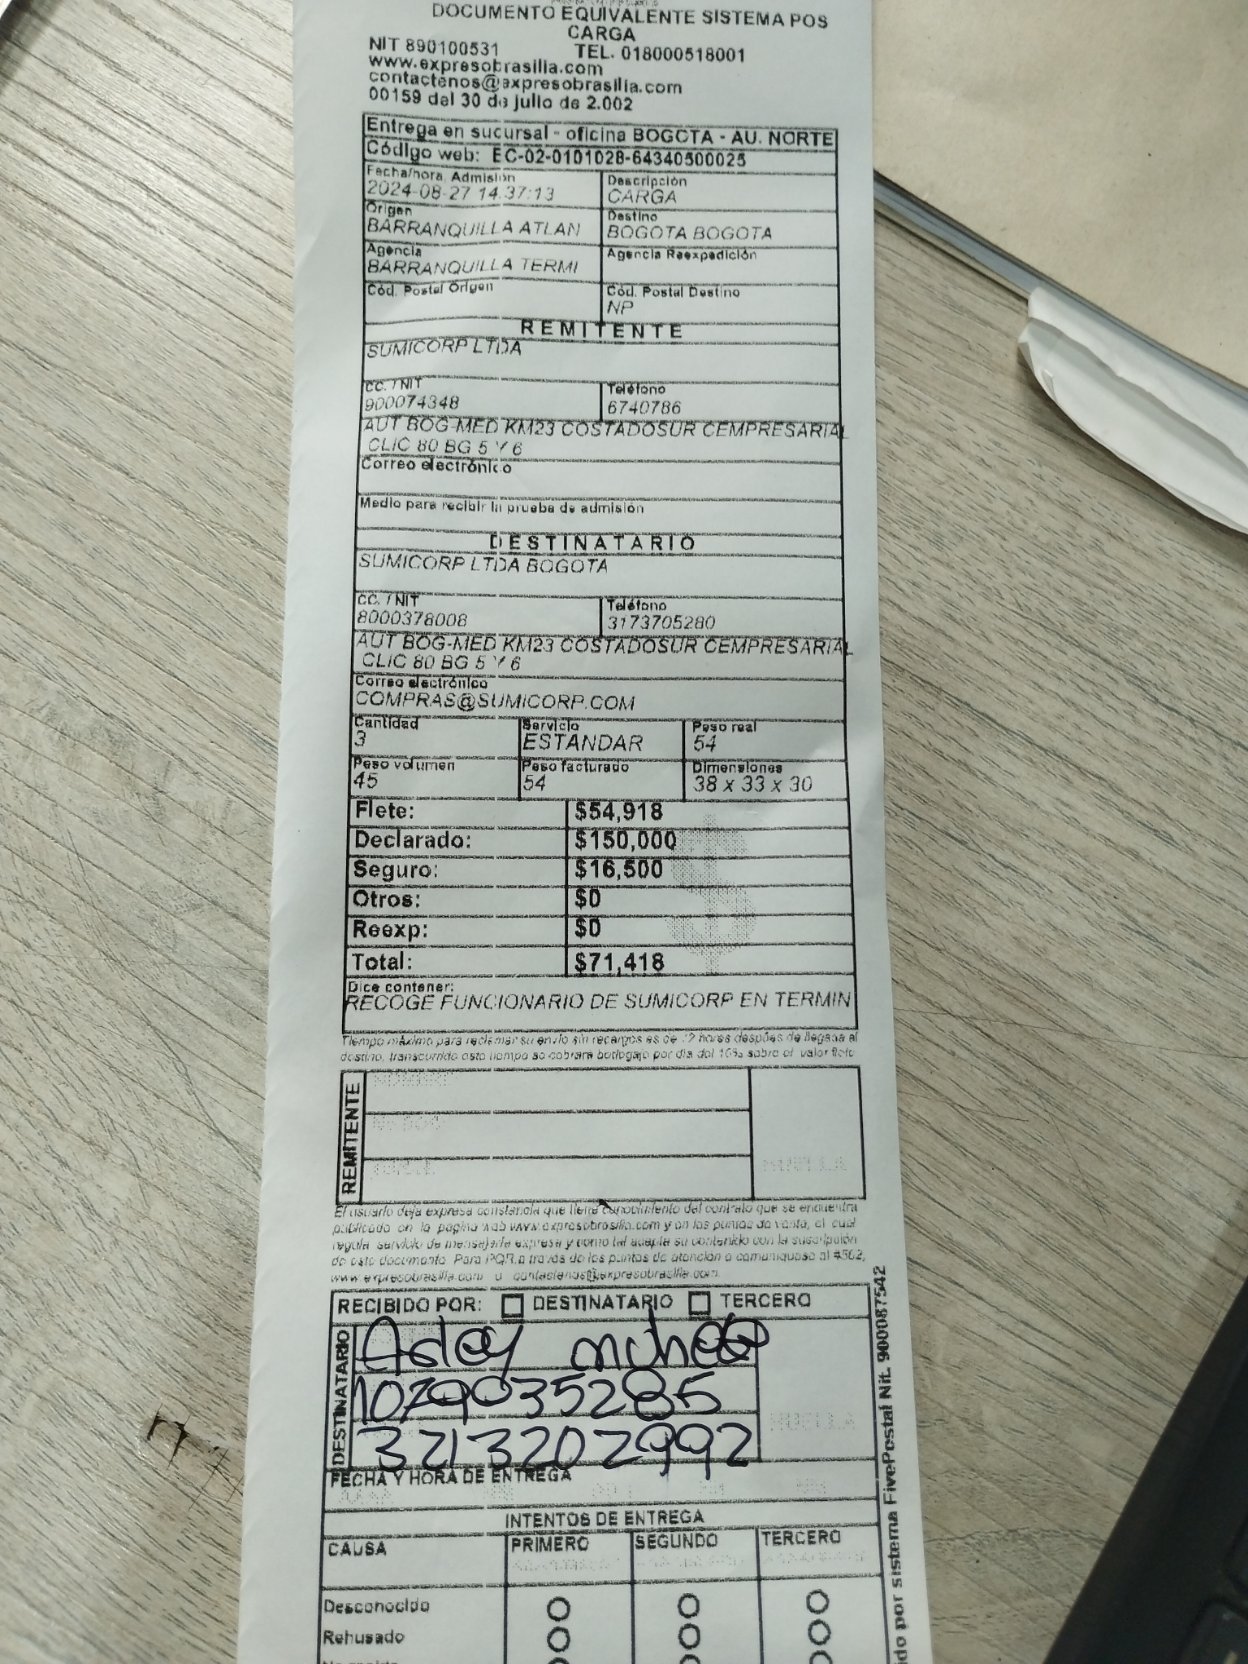 DOCUMENTO EQUIVALENTE SISTEMA POS
CARGA
NIT 890100531 TEL. 018000518001
www.expresobrasilia.com
contactenos@expresobrasilia.com
00159 del 30 de julio de 2.002
Entrega en sucursal - oficina BOGOTA - AU. NORTE
Código web: EC-02-0101028-64340500025
Fecha/hora. Admisión Descripción
2024-08-27 14:37:13 CARGA
Origen Destino
BARRANQUILLA ATLAN BOGOTA BOGOTA
Agencia Agencia Reexpedición
BARRANQUILLA TERMI
Cód. Postal Origen Cód. Postal Destino
NP
REMITENTE
SUMICORP LTDA
CC. / NIT Teléfono
900074348 6740786
AUT BOG-MED KM23 COSTADOSUR CEMPRESARIAL
CLIC 80 BG 5 Y 6
Correo electrónico
Medio para recibir la prueba de admisión
DESTINATARIO
SUMICORP LTDA BOGOTA
CC. / NIT Teléfono
8000378008 3173705280
AUT BOG-MED KM23 COSTADOSUR CEMPRESARIAL
CLIC 80 BG 5 Y 6
Correo electrónico
COMPRAS@SUMICORP.COM
Cantidad Servicio Peso real
3 ESTANDAR 54
Peso volumen Peso facturado Dimensiones
45 54 38 x 33 x 30
Flete: $54,918
Declarado: $150,000
Seguro: $16,500
Otros: $0
Reexp: $0
Total: $71,418
Dice contener:
RECOGE FUNCIONARIO DE SUMICORP EN TERMIN
Tiempo máximo para reclamar su envío sin recargos es de 72 horas después de llegada al
destino, transcurrido este tiempo se cobrara bodegaje por día del 10% sobre el valor flete
REMITENTE
HUELLA
El usuario deja expresa constancia que tiene conocimiento del contrato que se encuentra
publicado en la pagina web www.expresobrasilia.com y en los puntos de venta, el cual
regula servicio de mensajería expresa y como tal acepta su contenido con la suscripción
de este documento. Para PQR a través de los puntos de atención o comuniquese al #502,
www.expresobrasilia.com o contactenos@expresobrasilia.com
RECIBIDO POR: DESTINATARIO TERCERO
DESTINATARIO
1079035285
3213202992
HUELLA
FECHA Y HORA DE ENTREGA
INTENTOS DE ENTREGA
CAUSA PRIMERO SEGUNDO TERCERO
Desconocido
Rehusado
do por sistema FivePostal Nit. 900087542